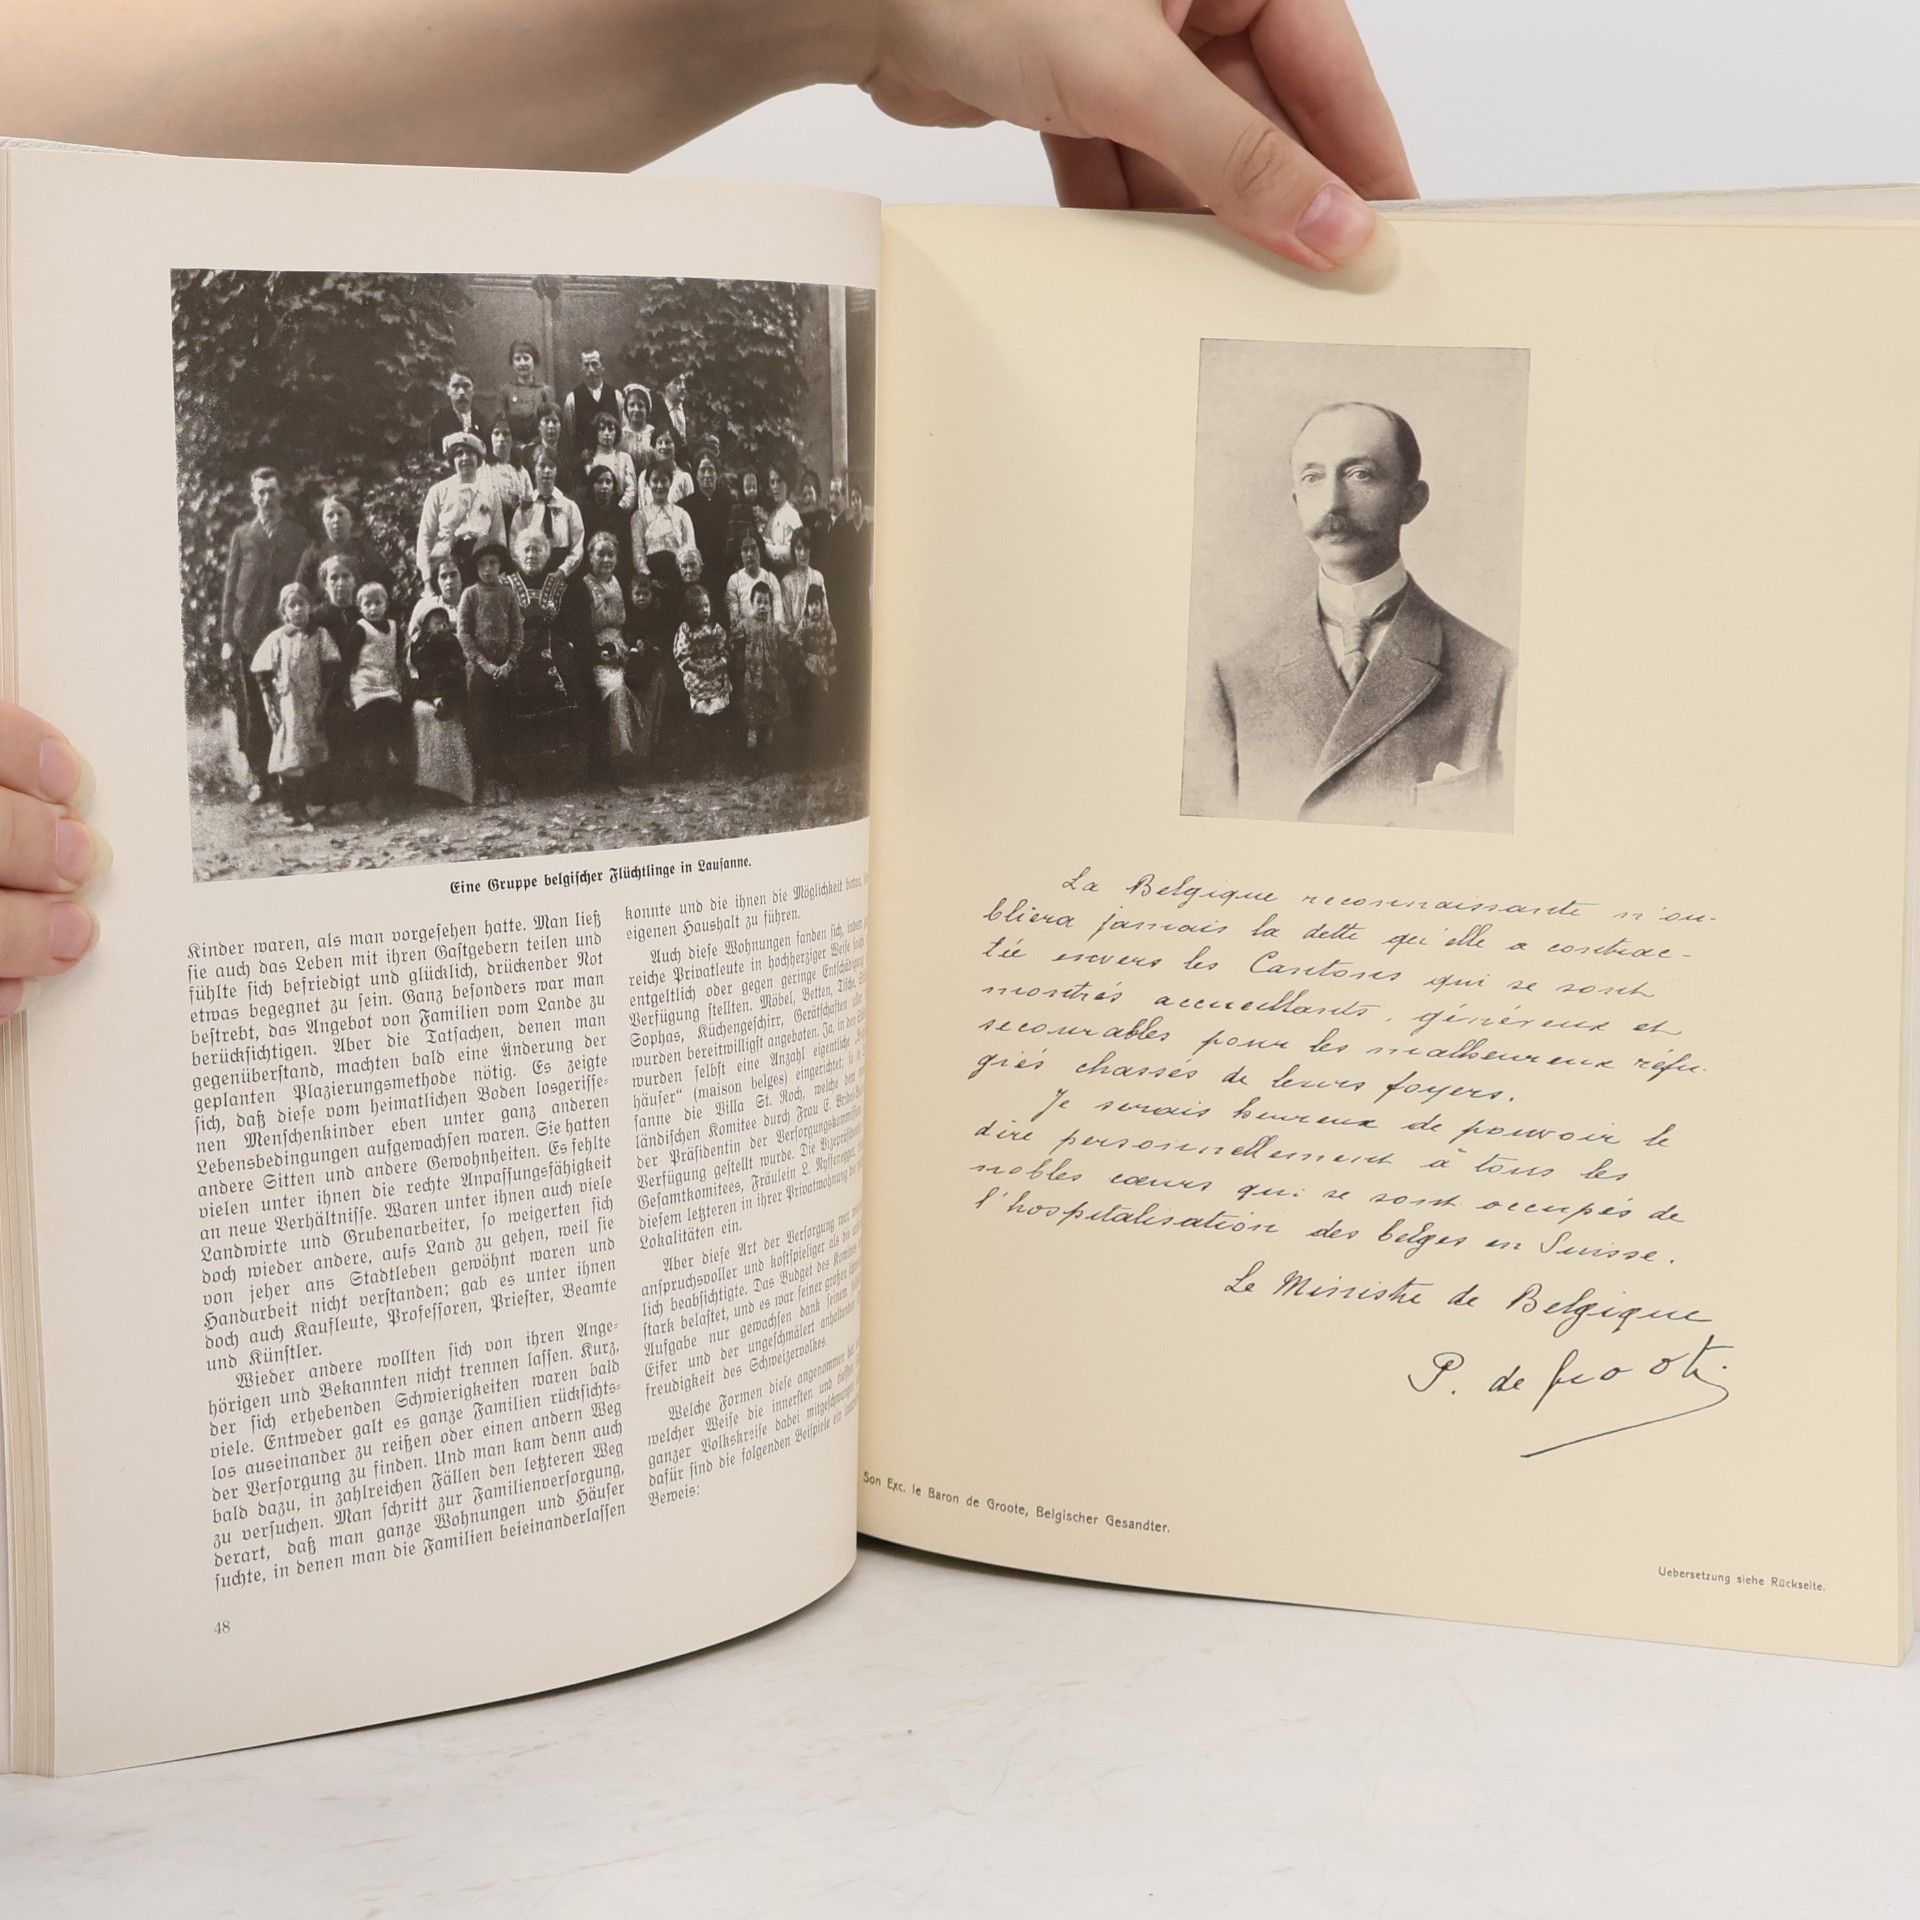 Eine Gruppe belgischer Flüchtlinge in Lausanne.
Kinder waren, als man vorgesehen hatte. Man ließ
sie auch das Leben mit ihren Gastgebern teilen und
fühlte sich befriedigt und glücklich, drückender Not
etwas begegnet zu sein. Ganz besonders war man
bestrebt, das Angebot von Familien vom Lande zu
berücksichtigen. Aber die Tatsachen, denen man
gegenüberstand, machten bald eine Änderung der
geplanten Plazierungsmethode nötig. Es zeigte
sich, daß diese vom heimatlichen Boden losgerisse-
nen Menschenkinder eben unter ganz anderen
Lebensbedingungen aufgewachsen waren. Sie hatten
andere Sitten und andere Gewohnheiten. Es fehlte
vielen unter ihnen die rechte Anpassungsfähigkeit
an neue Verhältnisse. Waren unter ihnen auch viele
Landwirte und Grubenarbeiter, so weigerten sich
doch wieder andere, aufs Land zu gehen, weil sie
von jeher ans Stadtleben gewöhnt waren und
Handarbeit nicht verstanden; gab es unter ihnen
doch auch Kaufleute, Professoren, Priester, Beamte
und Künstler.
Wieder andere wollten sich von ihren Ange-
hörigen und Bekannten nicht trennen lassen. Kurz,
der sich erhebenden Schwierigkeiten waren bald
viele. Entweder galt es ganze Familien rücksichts-
los auseinander zu reißen oder einen andern Weg
der Versorgung zu finden. Und man kam denn auch
bald dazu, in zahlreichen Fällen den letzteren Weg
zu versuchen. Man schritt zur Familienversorgung,
derart, daß man ganze Wohnungen und Häuser
suchte, in denen man die Familien beieinanderlassen
konnte und die ihnen die Möglichkeit boten,
eigenen Haushalt zu führen.
Auch diese Wohnungen fanden sich, indem
reiche Privatleute in hochherziger Weise solche
entgeltlich oder gegen geringe Entschädigung
Verfügung stellten. Möbel, Betten, Tische,
Sophas, Küchengeschirr, Gerätschaften aller
wurden bereitwilligst angeboten. Ja, in den
wurden selbst eine Anzahl eigentliche
häuser“ (maison belges) eingerichtet; so in
sanne die Villa St. Roch, welche dem
ländischen Komitee durch Frau E.
der Präsidentin der Versorgungskommission
Verfügung gestellt wurde. Die Vizepräsidentin
Gesamtkomitees, Fräulein L. Nyffenegger,
diesem letzteren in ihrer Privatwohnung die
Lokalitäten ein.
Aber diese Art der Versorgung war
anspruchsvoller und kostspieliger als die
lich beabsichtigte. Das Budget des Komitees
stark belastet, und es war seiner großen
Aufgabe nur gewachsen dank seinem
Eifer und der ungeschmälert anhaltenden
freudigkeit des Schweizervolkes.
Welche Formen diese angenommen hat
welcher Weise die innersten und tiefsten
ganzer Volkskreise dabei mitgeschwungen
dafür sind die folgenden Beispiele ein
Beweis:
48
La Belgique reconnaissante n'ou-
bliera jamais la dette qu'elle a contrac-
tée envers les Cantons qui se sont
montrés accueillants, généreux et
secourables pour les malheureux réfu-
giés chassés de leurs foyers.
Je serais heureux de pouvoir le
dire personnellement à tous les
nobles cœurs qui se sont occupés de
l'hospitalisation des belges en Suisse.
Le Ministre de Belgique
P. de Groote
Son Exc. le Baron de Groote, Belgischer Gesandter.
Uebersetzung siehe Rückseite.